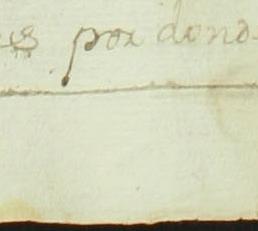 por dond